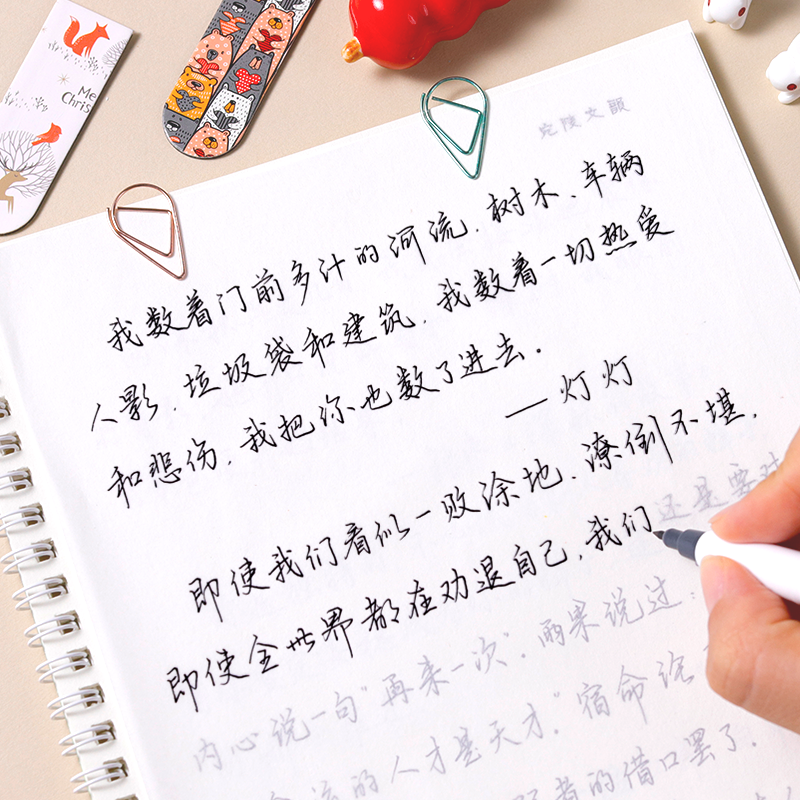 Me
Chris
我数着门前多汁的河流，树木，车辆
人影，垃圾袋和建筑，我数着一切热爱
和悲伤，我把你也数了进去。
——灯灯
即使我们看似一败涂地，潦倒不堪，
即使全世界都在劝退自己，我们还是要对
内心说一句“再来一次”，雨果说过：
的人才是天才，“宿命论
者的借口罢了。